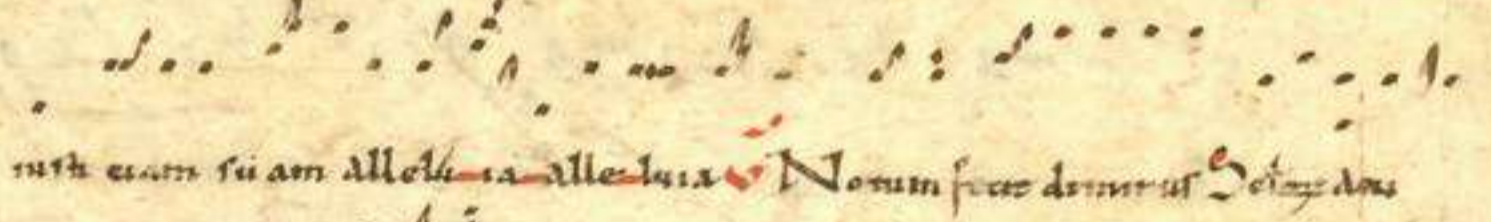 iusti ciam su am allelu ia alle luia V Notum fecit dominus